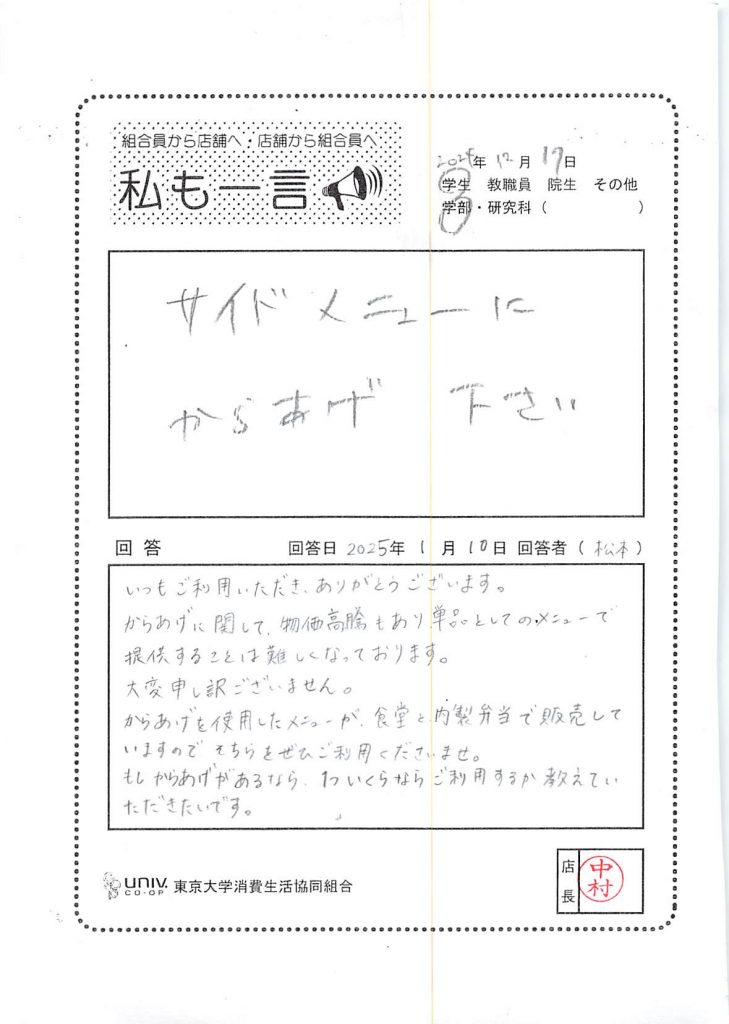 組合員から店舗へ・店舗から組合員へ
私も一言
2024年 12月 17日
学生 教職員 院生 その他
学部・研究科 ( )
サイドメニューに
からあげ 下さい
回答 回答日 2025年 1月 10日 回答者 ( 松本 )
いつもご利用いただき、ありがとうございます。
からあげに関して、物価高騰もあり、単品としてのメニューで
提供することは難しくなっております。
大変申し訳ございません。
からあげを使用したメニューが、食堂と内製弁当で販売して
いますのでそちらをぜひご利用くださいませ。
もしからあげがあるなら、1ついくらならご利用するか教えてい
ただきたいです。
UNIV. CO-OP 東京大学消費生活協同組合
店長 中村